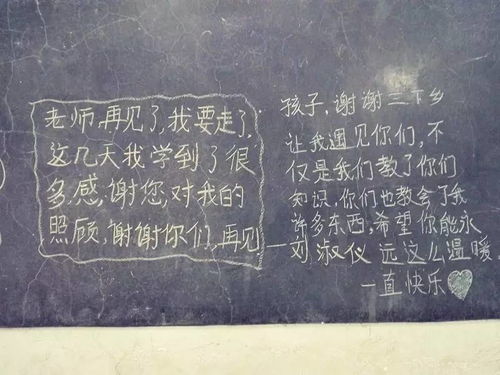 老师,再见了,我要走了,
这几天我学到了很
多,感,谢您,对我的
照顾,谢谢你们,再见
孩子,谢谢三下乡
让我遇见你们,不
仅是我们教了你们
知识,你们也教会了我
许多东西,希望你能永
远这么温暖,
一直快乐
—刘淑仪